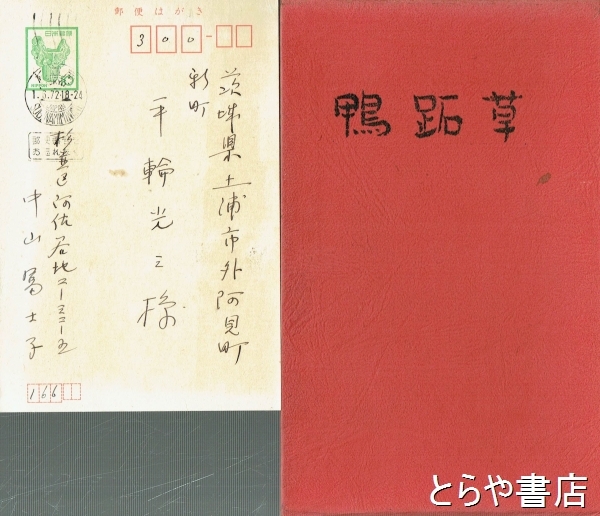 郵便はがき
300
日本郵便
NIPPON
72.18-24
茨城県土浦市外阿見町
新町
平輪光三様
杉並区阿佐谷北二ー三二ー五
中山冨士子
166
鴨跖草
とらや書店